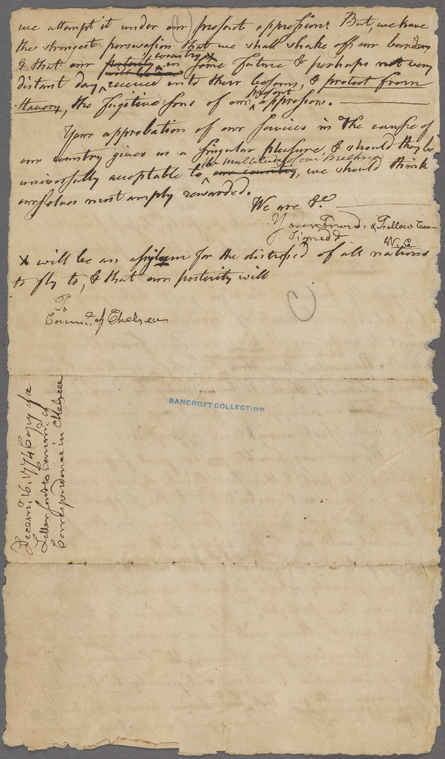 we attempt it under our present oppression. But, we have
the strongest perswasion that we shall shake off our burdens
& that our posterity country X in some future & perhaps not very
distant day, receive into their bosoms, & protect from
Slavery, the fugitive sons of our present oppressors.
Your approbation of our services in the cause of
our country gives us a singular pleasure, & should they be
universally acceptable to our country, the multitude of our Brethren, we should think
ourselves most amply rewarded.
We are &c
Your Friends, & Fellow
Signed W. C.
X will be an assylum for the distressed of all nations
to fly to, & that our posterity will
To
Comm. of Chelsea
BANCROFT COLLECTION
Decem. 16. 1774 Copy of a
Letter from to Comm. of
Correspondence in Chelsea